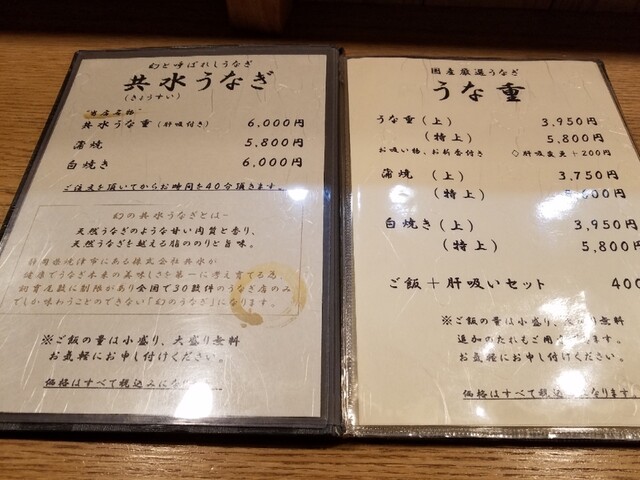 幻と呼ばれしうなぎ
共水うなぎ
(きょうすい)
"当店名物"
共水うな重(肝吸付き) 6,000円
蒲焼 5,800円
白焼き 6,000円
ご注文を頂いてからお時間を40分頂きます。
幻の共水うなぎとは-
天然うなぎのような甘い肉質と香り、
天然うなぎを越える脂ののりと旨味。
静岡県焼津市にある株式会社共水が
健康でうなぎ本来の美味しさを第一に考え育てる為
飼育尾数に制限があり全国で30数件のうなぎ店のみ
でしか味わうことのできない「幻のうなぎ」になります。
※ご飯の量は小盛り、大盛り無料
お気軽にお申し付けください。
価格はすべて税込みになり
国産厳選うなぎ
うな重
うな重(上) 3,950円
(特上) 5,800円
お吸い物、お新香付き ◇肝吸変更+200円
蒲焼(上) 3,750円
(特上) 5,600円
白焼き(上) 3,950円
(特上) 5,800
ご飯+肝吸いセット 400
※ご飯の量は小盛り、大盛り無料
追加のたれもご用
お気軽にお申し付けください。
価格はすべて税込みになります。